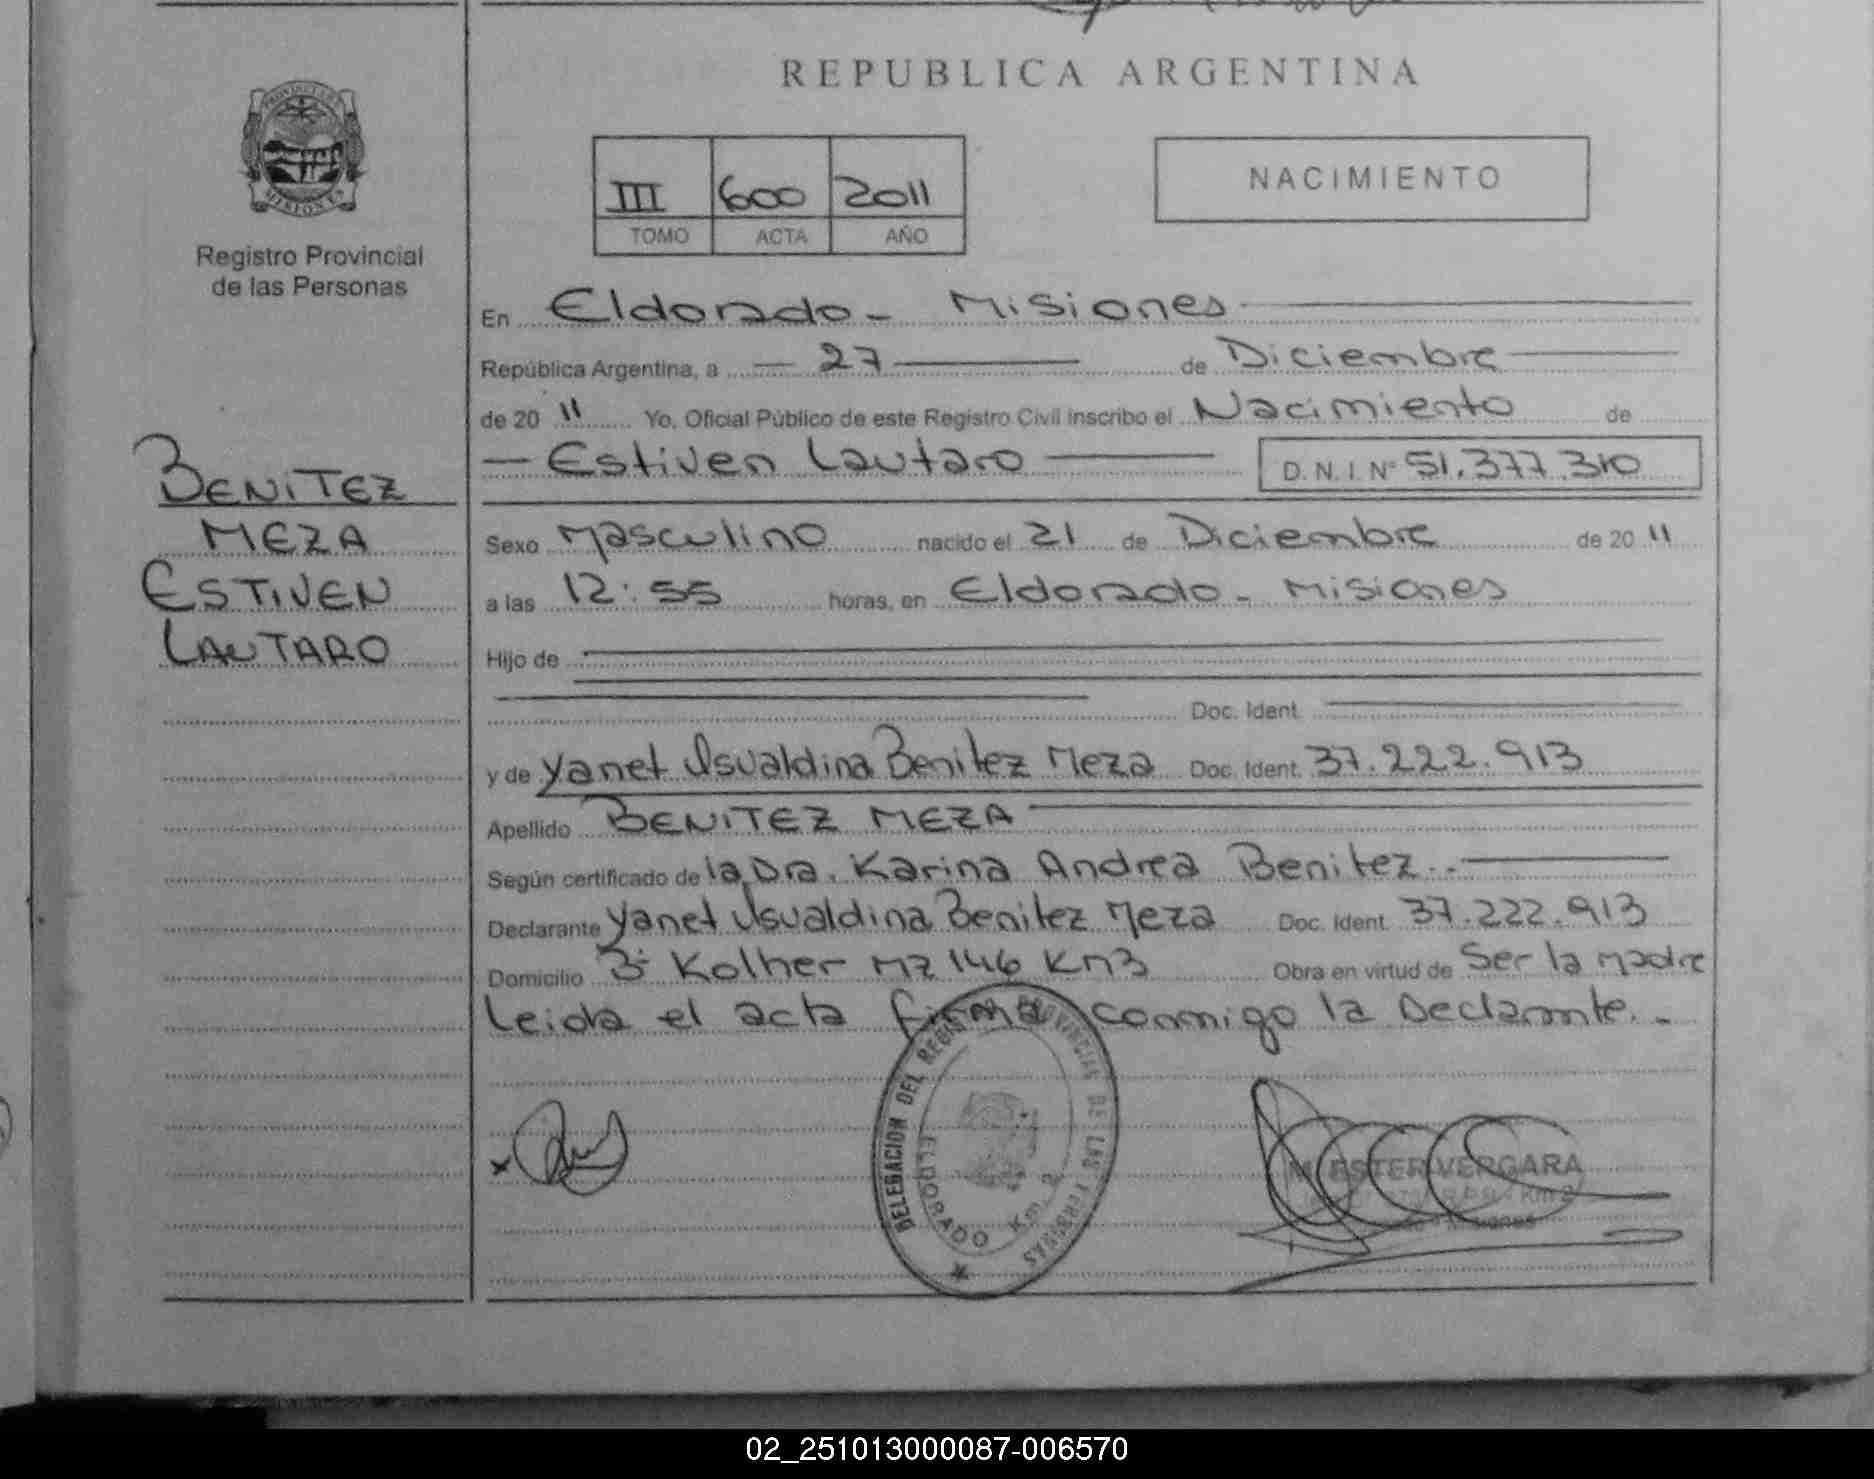 REPUBLICA ARGENTINA
PROVINCIA DE
MISIONES
Registro Provincial
de las Personas
III 600 2011
TOMO ACTA AÑO
NACIMIENTO
En Eldorado - Misiones
República Argentina, a 27 de Diciembre
de 20 11 Yo, Oficial Público de este Registro Civil inscribo el Nacimiento de
Estiven Lautaro D. N. I. Nº 51.377.310
BENITEZ
MEZA
ESTIVEN
LAUTARO
Sexo Masculino nacido el 21 de Diciembre de 20 11
a las 12:55 horas, en Eldorado - Misiones
Hijo de
Doc. Ident.
y de Yanet Usualdina Benitez Meza Doc. Ident. 37.222.913
Apellido BENITEZ MEZA
Según certificado de la Dra. Karina Andrea Benitez.-
Declarante Yanet Usualdina Benitez Meza Doc. Ident. 37.222.913
Domicilio Bº Kolher MZ 146 Km3 Obra en virtud de Ser la madre
Leida el acta firma conmigo la Declarante.-
DELEGACION DEL REGISTRO PROVINCIAL DE LAS PERSONAS
ELDORADO Km. 2
M. ESTER VERGARA
Km 2
Misiones
02_251013000087-006570